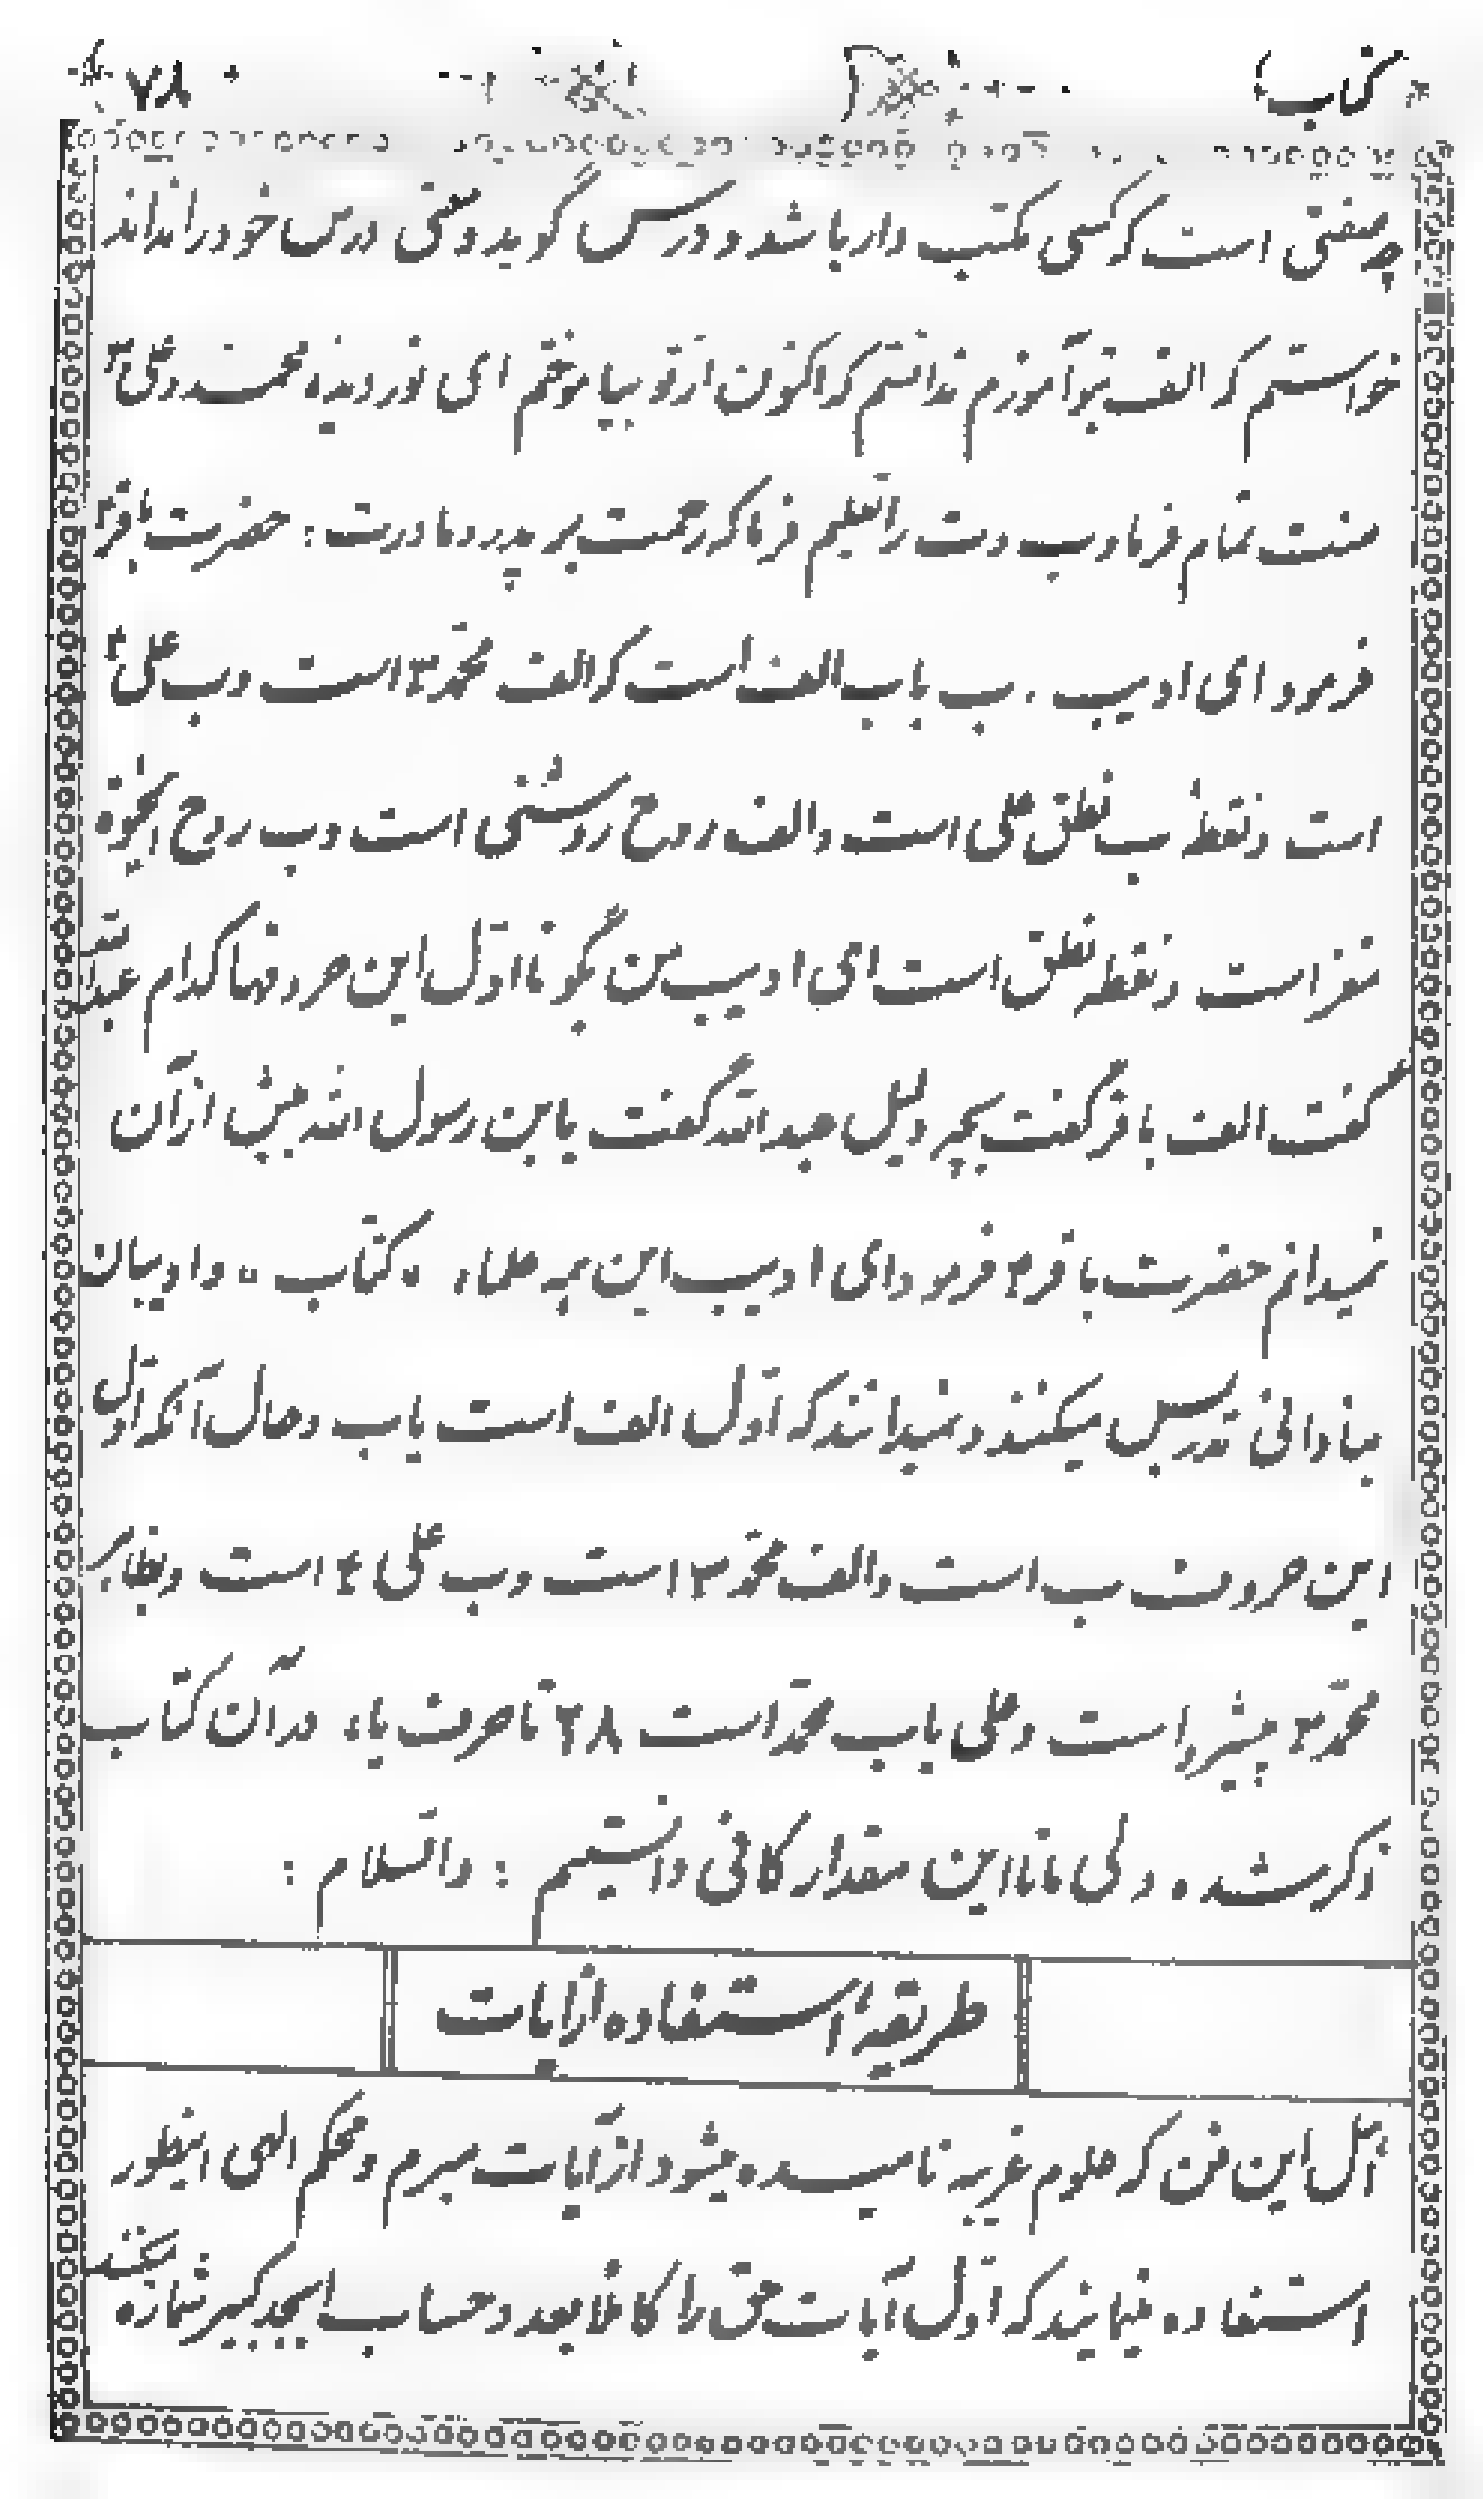 کتاب ۷۸
چه صفتی است که کسی مکتب دار باشد و درس گوید و معنی درس خود را نداند
خواستم که الف بتو آموزم ندانستم که اکنون از تو بیاموختم ای نور دیده محمد و علی ۴
منت تمام فرما و ب و ت را تعلیم فرما که رحمت بر پدر و مادرت : حضرت باقر ۴
فرمود ای ادیب . ب باب الف است که الف محمد ۳ است و ب علی ۴
است و نقطهٔ ب نطق علی است و الف روح روشنی است و ب روح الحیوة
مغز است و نقطه نطق است ای ادیب بمن بگو تا اول این حروفها کدام عبدالله
گفت الف باقر گفت بچه دلیل عبدالله گفت یابن رسول الله بیش از آن
نمیدانم حضرت باقر ۴ فرمود ای ادیب این همه علماء " کتاب " و ادیبان
بنادانی تدریس میکنند و نمیدانند که اول الف است یا ب و حال آنکه اول
این حروف ب است و الف محمد ۳ است و ب علی ۴ است و بظاهر
محمد ۳ پیشرو است و علی باب محمد است ۲۸ تا حرف یاء در آن کتاب
ذکر شده ولی ما تا این مقدار کافی دانستیم : والسلام :
طریقهٔ استفاده از آیات
اهل این فن که علوم غریبه نامیده میشود از آیات مبرم و محکم الهی اینطور
استفاده مینمایند که اول آیات حق را کاملا بعدد و حساب ابجد کبیر شماره میکنند